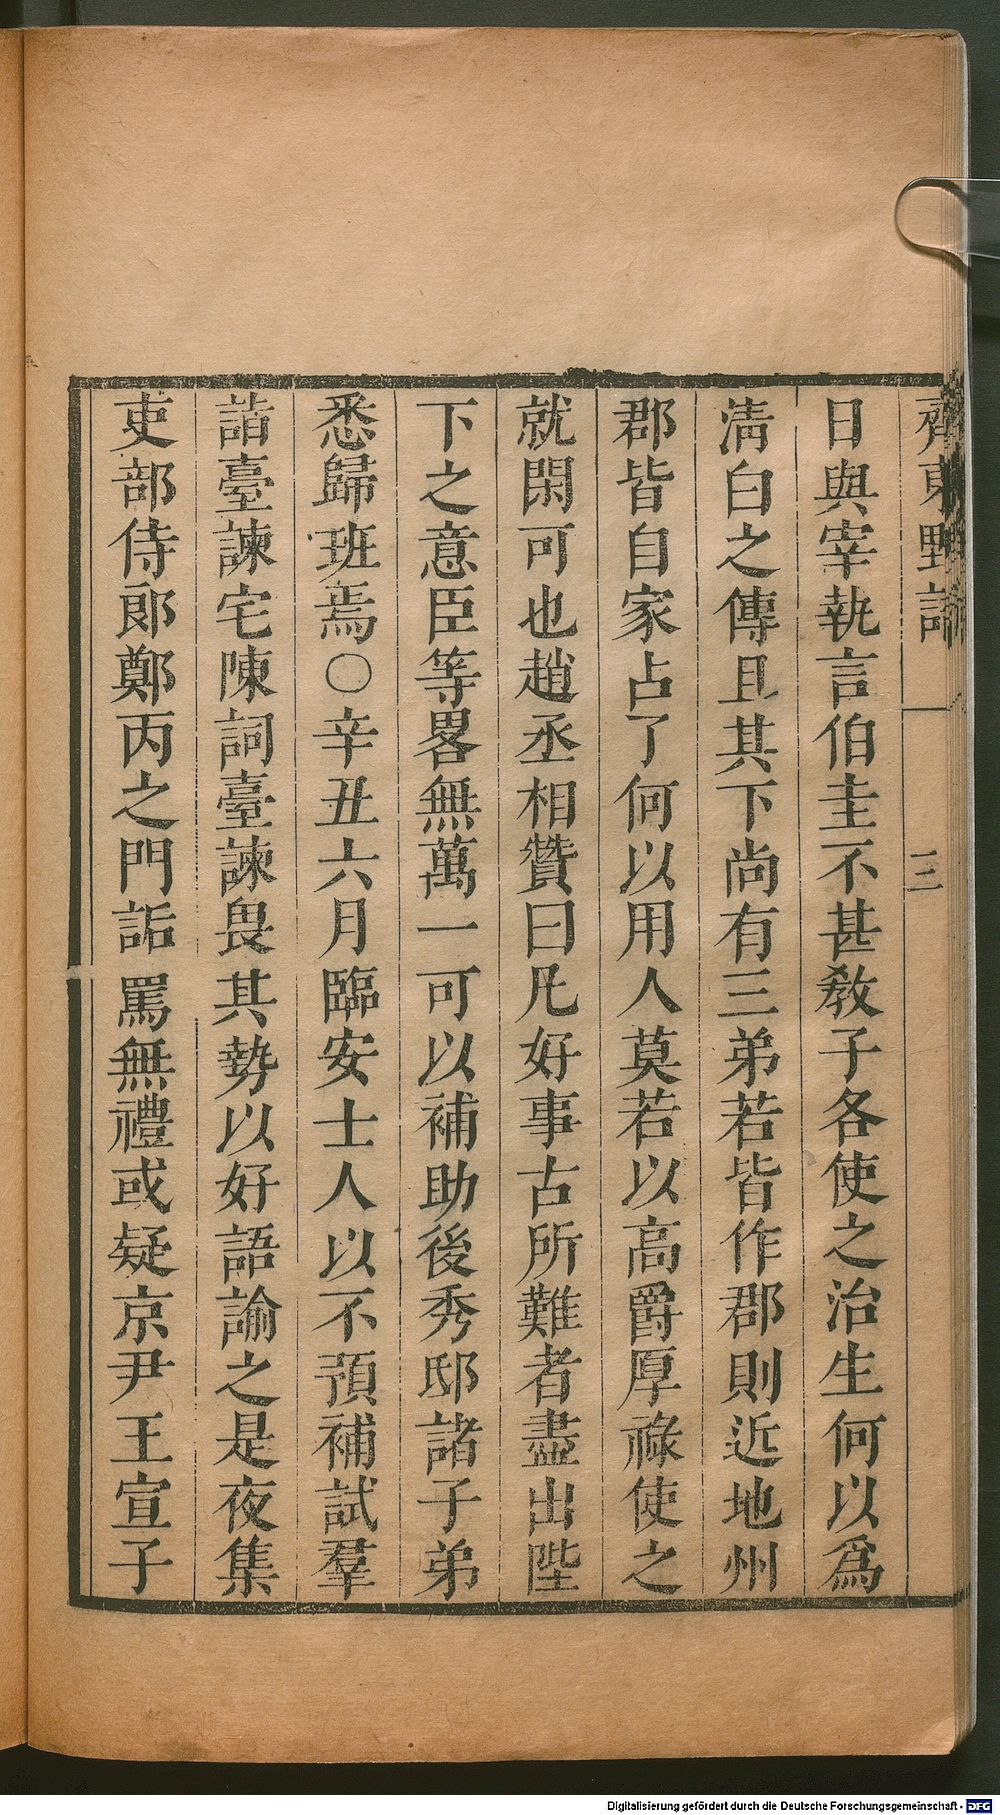 齊東野語 三
日與宰執言伯圭不甚教子各使之治生何以爲
淸白之傳且其下尚有三弟若皆作郡則近地州
郡皆自家占了何以用人莫若以高爵厚祿使之
就閑可也趙丞相贊曰凡好事古所難者盡出陛
下之意臣等畧無萬一可以補助後秀邸諸子弟
悉歸班焉○辛丑六月臨安士人以不預補試羣
詣臺諫宅陳詞臺諫畏其勢以好語諭之是夜集
吏部侍郞鄭丙之門詬罵無禮或疑京尹王宣子
Digitalisierung gefördert durch die Deutsche Forschungsgemeinschaft - DFG